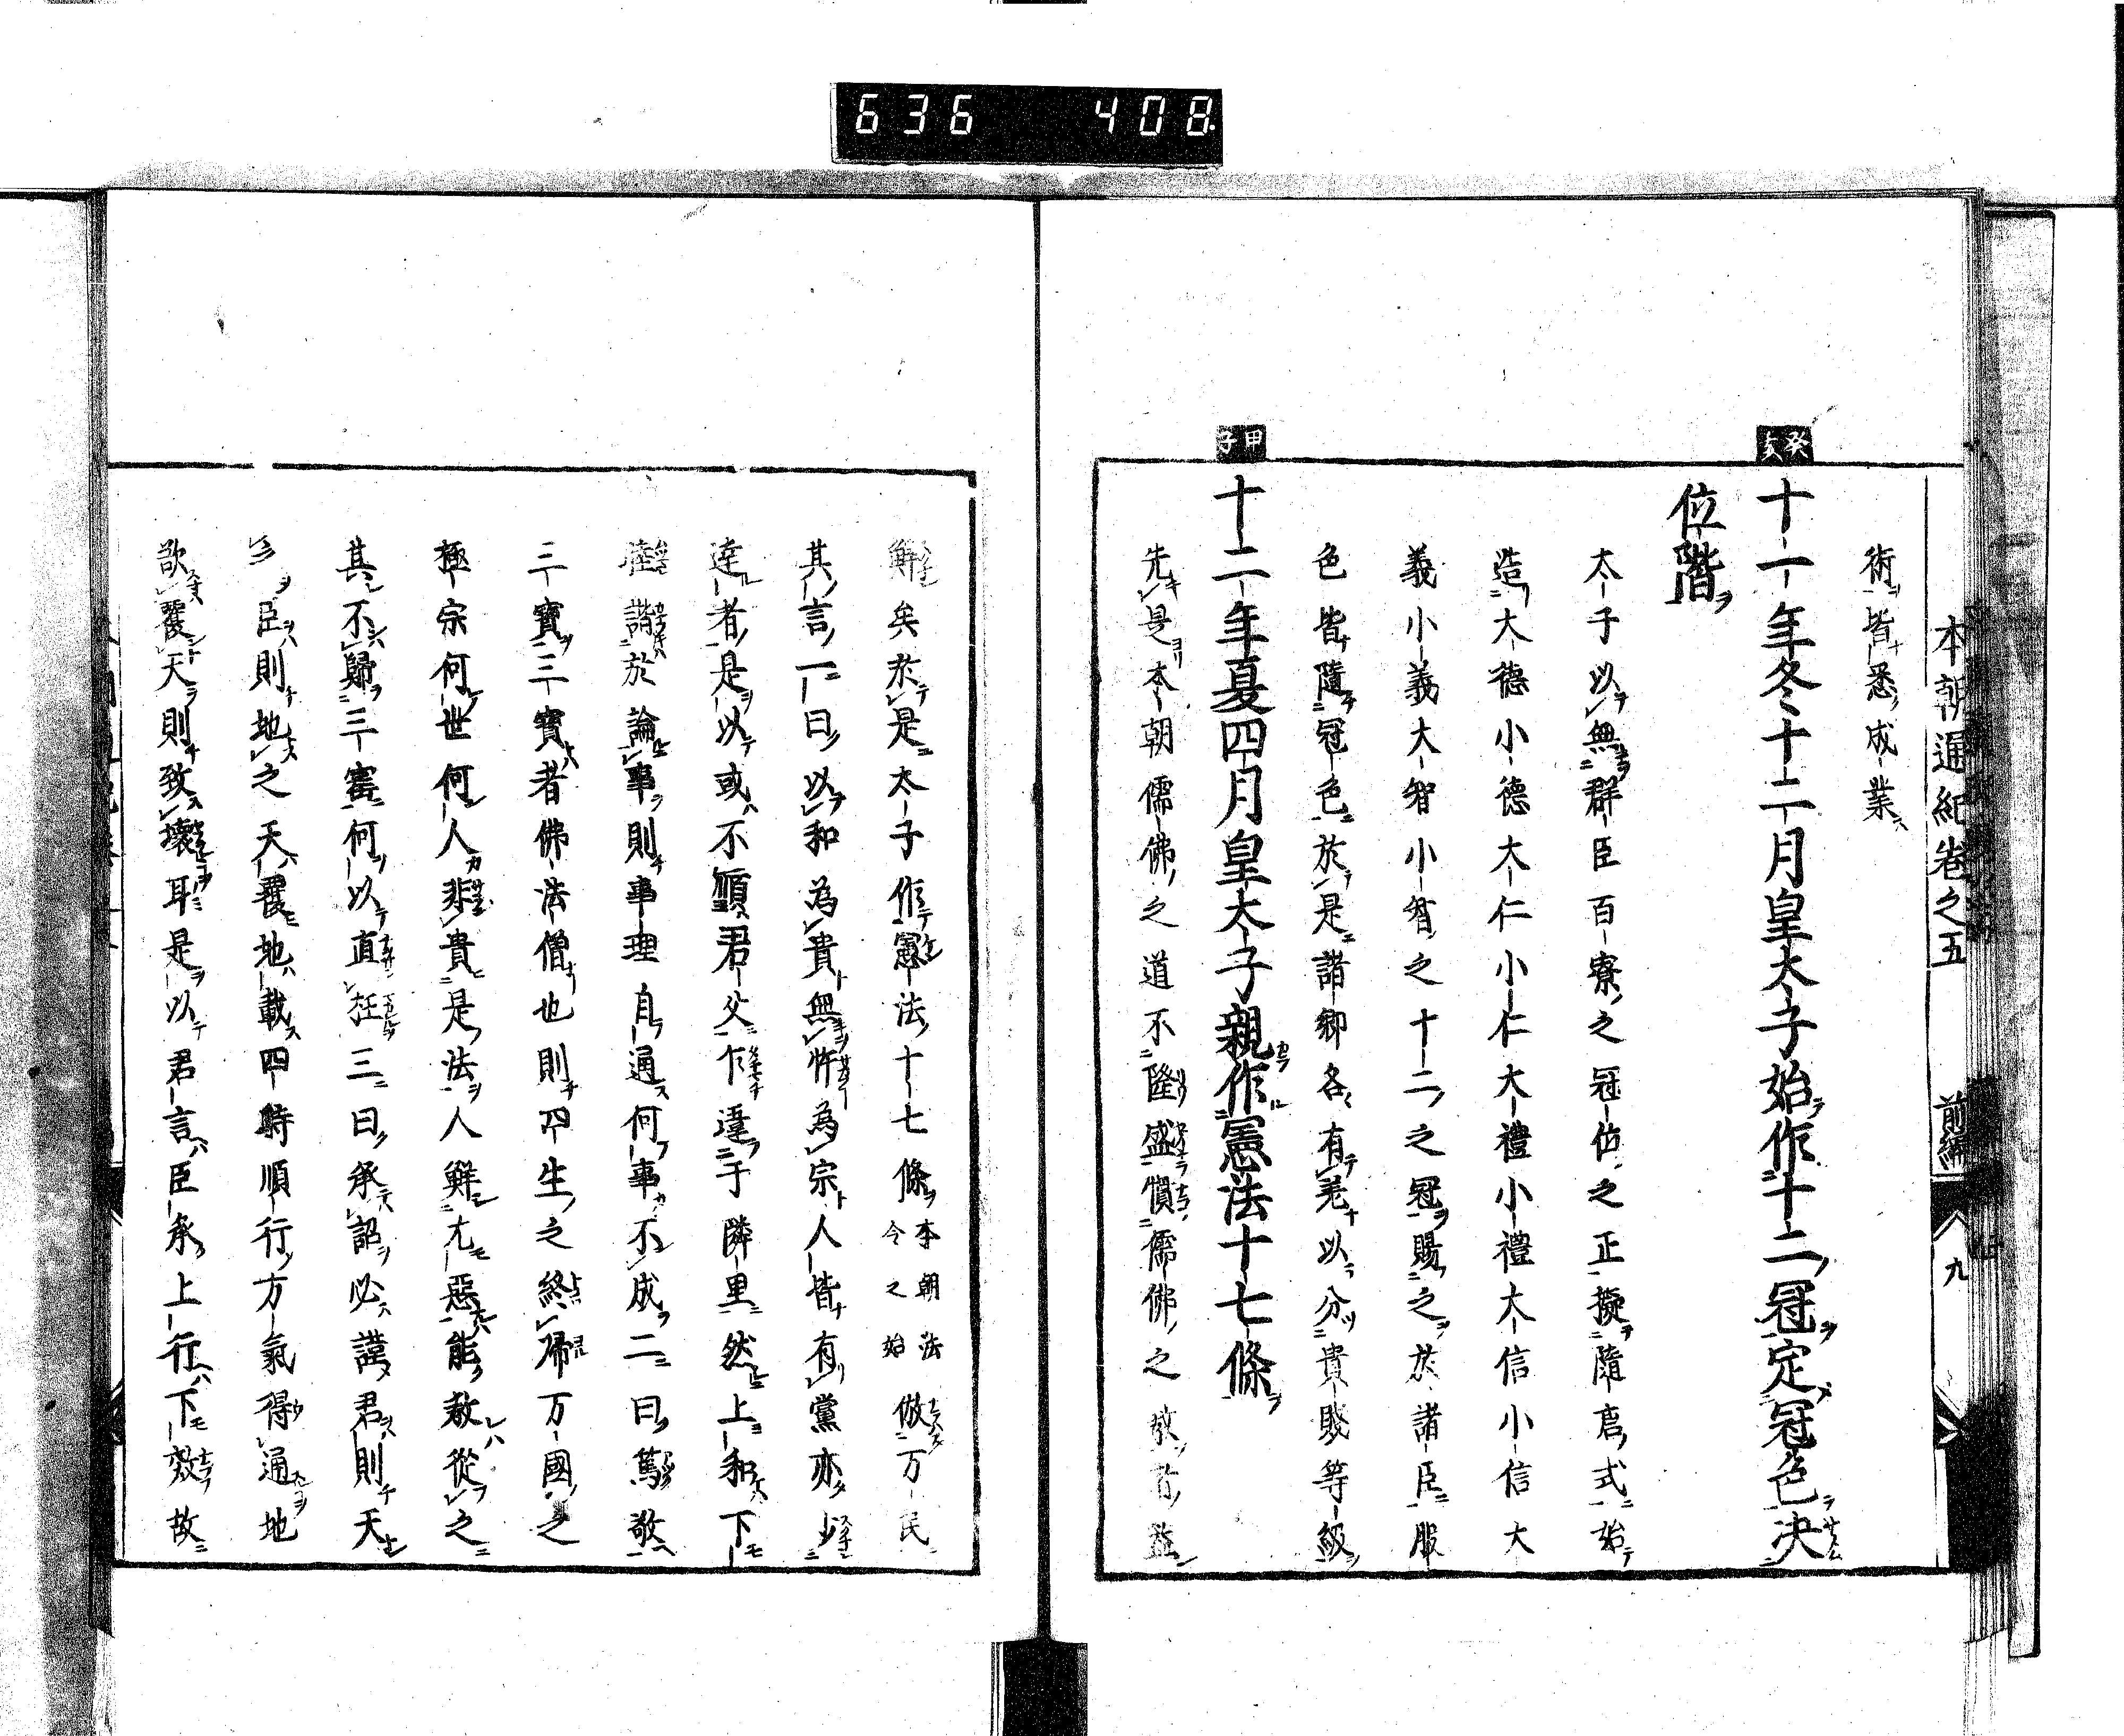 636 408
本朝通紀卷之五 前編 九
術皆悉成業
癸亥
十一年冬十二月皇太子始作十二冠定冠色決
位階
太子以無群臣百寮之冠位之正擬隋唐式始
造大德小德大仁小仁大禮小禮大信小信大
義小義大智小智之十二之冠賜之於諸臣服
色皆隨冠色於是諸卿各有差以分貴賤等級
甲子
十二年夏四月皇太子親作憲法十七條
先是本朝儒佛之道不隆盛慣儒佛之教者益
鮮矣於是太子作憲法十七條本朝法令之始倣万民
其言一曰以和為貴無忤為宗人皆有黨亦少
達者是以或不順君父乍違于隣里然上和下
睦諧於論事則事理自通何事不成二曰篤敬
三寶三寶者佛法僧也則四生之終歸万國之
極宗何世何人非貴是法人鮮尤惡能教從之
其不歸三寶何以直枉三曰承詔必謹君則天
臣則地之天覆地載四時順行方氣得通地
欲覆天則致壞耳是以君言臣承上行下效故